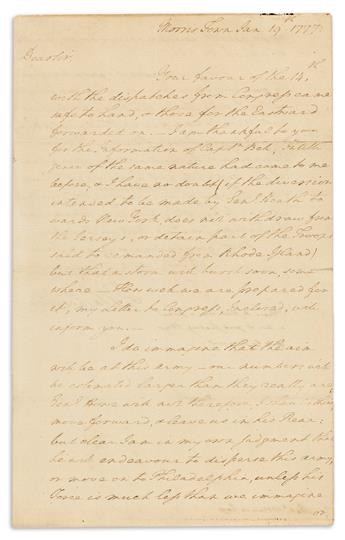 Morris Town Jan 19th 1777.
Dear Sir.
Your favour of the 14th
with the dispatches from Congress came
safe to hand, & those for the Eastward
forwarded on. — I am thankful to you
for the information of Captn Bell, Intelli
gence of the same nature had come to me
before, & I have no doubt (if the diversion
intended to be made by Genl Heath to
wards New York, does not withdraw from
the Jerseys, or detain part of the Troops
said to be manded from Rhode Island)
but that a storm will burst soon, some
where — How well we are prepared for
it, my Letter to Congress, Inclosed, will
inform you. —
I do immagine that the aim
will be at this army — our numbers will
be estimated larger than they really are;
Genl Howe will not therefore, I
move forward, & leave us in his Rear;
but clear I am in my own judgment that
he will endeavour to disperse this army,
or move on to Philadelphia, unless his
Force is much less than we immagine